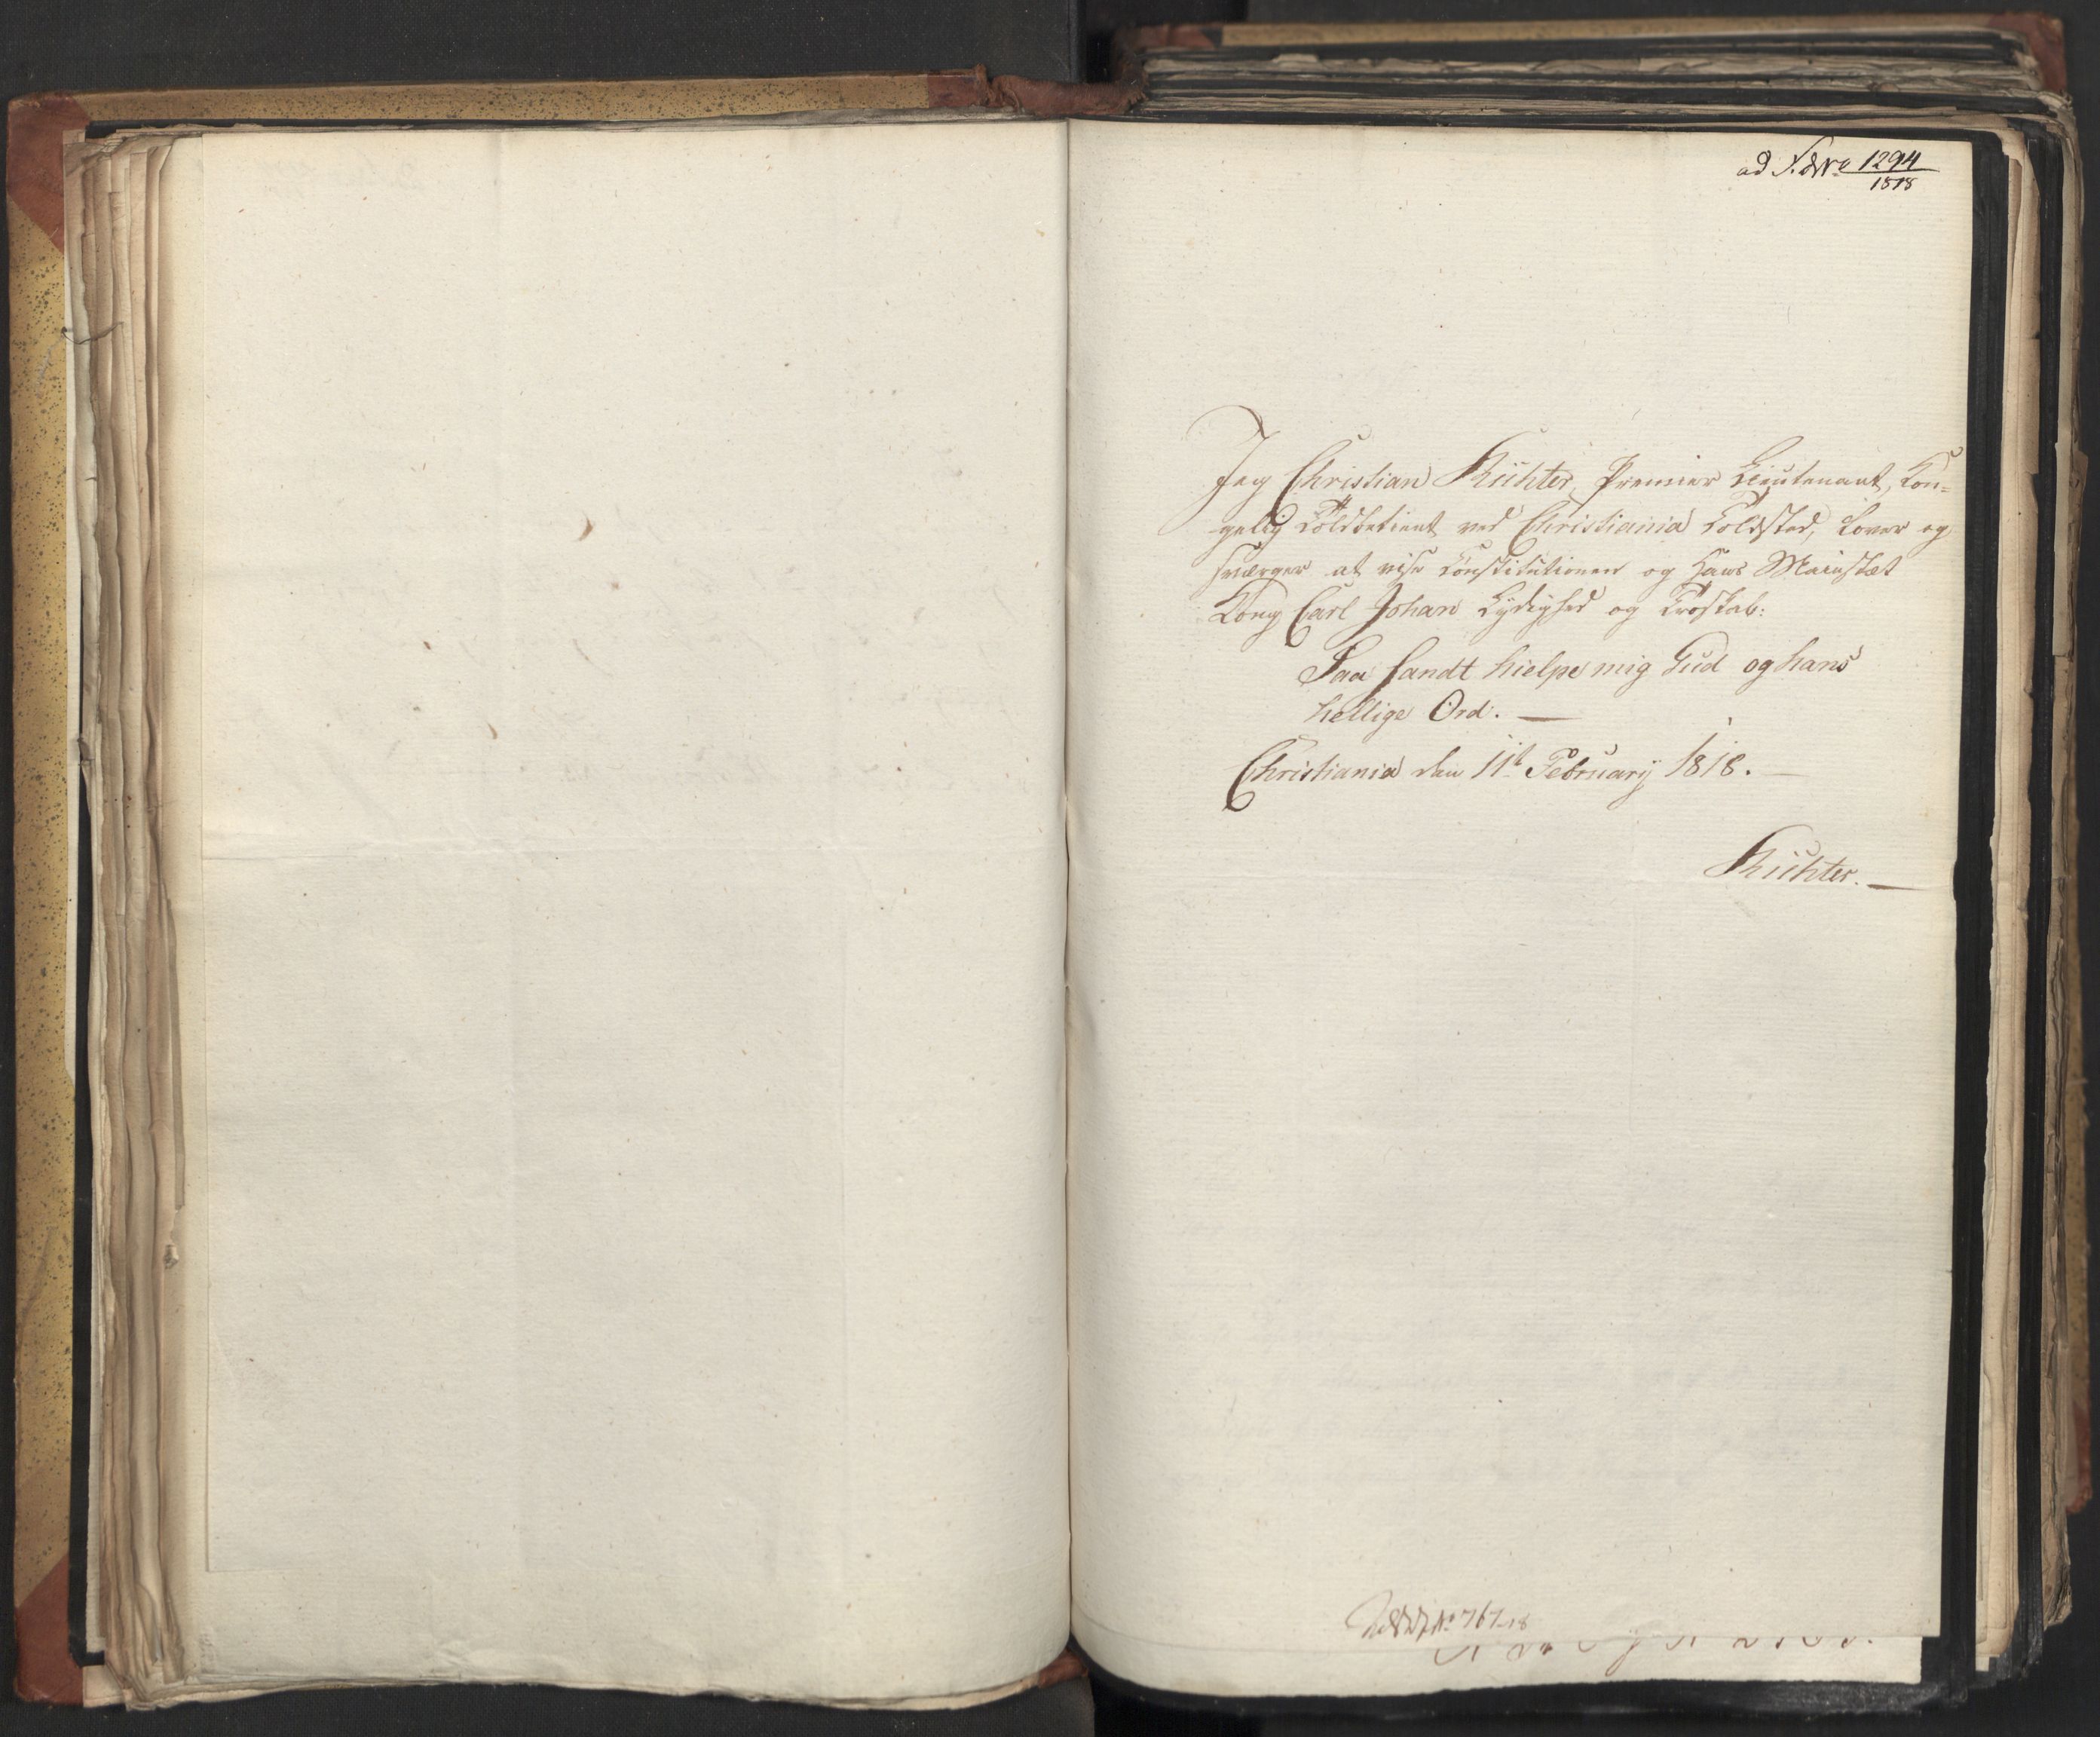 ad F. d. No 1294
1818
Jeg Christian Richter, Premier Lieutenant, Kon-
gelig Toldbetient ved Christiania Toldsted, Lover og
sværger at vise Constitutionen og Hans Maiestæt
Kong Carl Johan Lydighed og Troskab:
Saa sandt hielpe mig Gud og hans
hellige Ord. —
Christiania den 11t February 1818. —
Richter. —
No 767-18